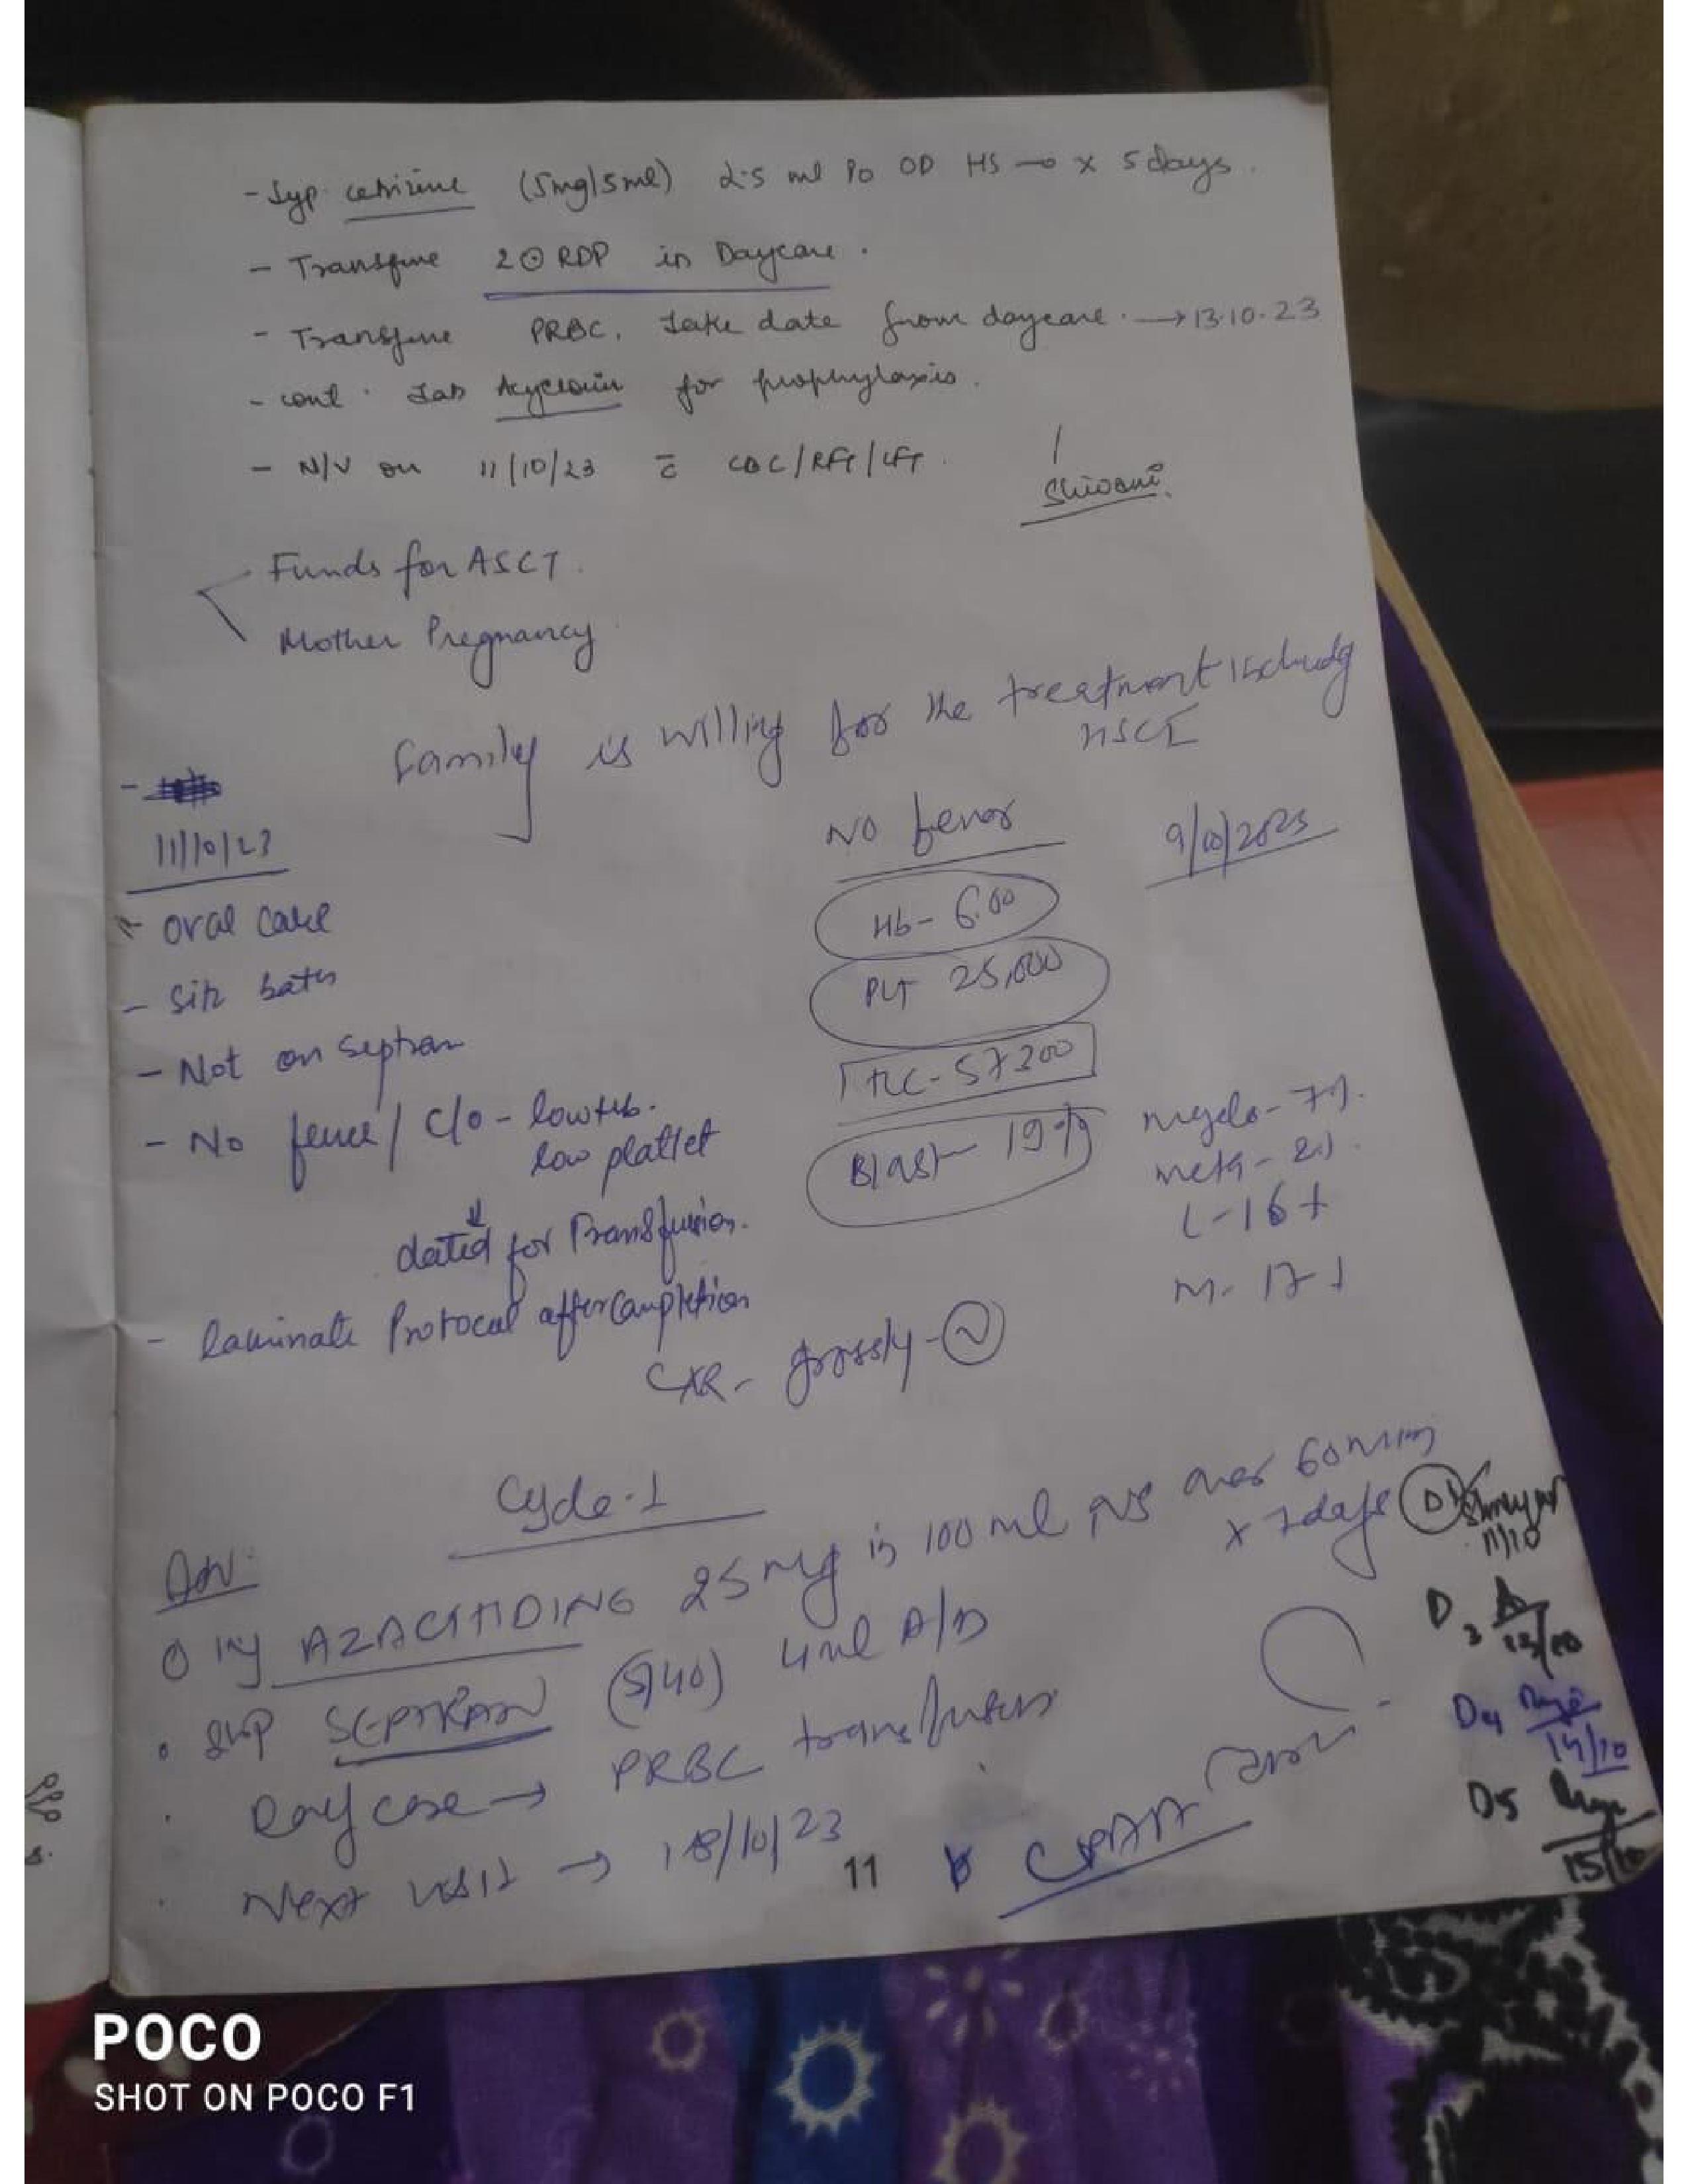 - Syp. cetrizine (5mg/5ml) 2.5 ml PO OD HS → x 5 days.
- Transfuse 2 RDP in Daycare.
- Transfuse PRBC. Take date from daycare. → 13.10.23
- cont. Tab Acyclovir for prophylaxis.
- N/V on 11/10/23 c̄ CBC/RFT/LFT.
Shivani
Funds for ASCT.
Mother Pregnancy
Family is willing for the treatment including
HSCT
11/10/23
No fever
9/10/2023
- oral care
Hb - 6.00
- Sitz bath
PLT 25,000
- Not on Septran
TLC - 57300
- No fever / C/o - low Hb.
low platlet
Blast - 19%
myelo - 7%.
meta - 2%.
L - 16%
M - 17%
dated for Transfusion.
- laminate Protocal after Completion
CXR - grossly - N
Cycle-1
Adv:
Inj AZACITIDINE 25 mg in 100 ml NS over 60 min
x 7 days
D1
11/10
• Syp SEPTRAN (5/40) 4ml A/D
D3
D4
14/10
D5
15/10
• Day care → PRBC transfusion
• Next visit → 18/10/23
11
POCO
SHOT ON POCO F1